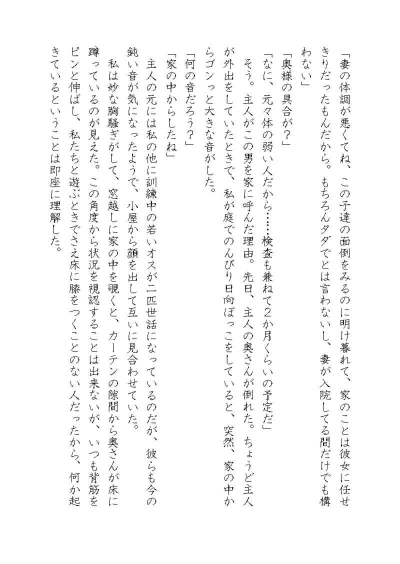 「妻の体調が悪くてね、この子達の面倒をみるのに明け暮れて、家のことは彼女に任せ
きりだったもんだから。もちろんタダでとは言わないし、妻が入院してる間だけでも構
わない」
「奥様の具合が？」
「なに、元々体の弱い人だから……検査も兼ねて２か月くらいの予定だ」
そう。主人がこの男を家に呼んだ理由。先日、主人の奥さんが倒れた。ちょうど主人
が外出をしていたときで、私が庭でのんびり日向ぼっこをしていると、突然、家の中か
らゴンっと大きな音がした。
「何の音だろう？」
「家の中からしたね」
主人の元には私の他に訓練中の若いオスが二匹世話になっているのだが、彼らも今の
鈍い音が気になったようで、小屋から顔を出して互いに見合わせていた。
私は妙な胸騒ぎがして、窓越しに家の中を覗くと、カーテンの隙間から奥さんが床に
蹲っているのが見えた。この角度から状況を視認することは出来ないが、いつも背筋を
ピンと伸ばし、私たちと遊ぶときでさえ床に膝をつくことのない人だったから、何か起
きているということは即座に理解した。